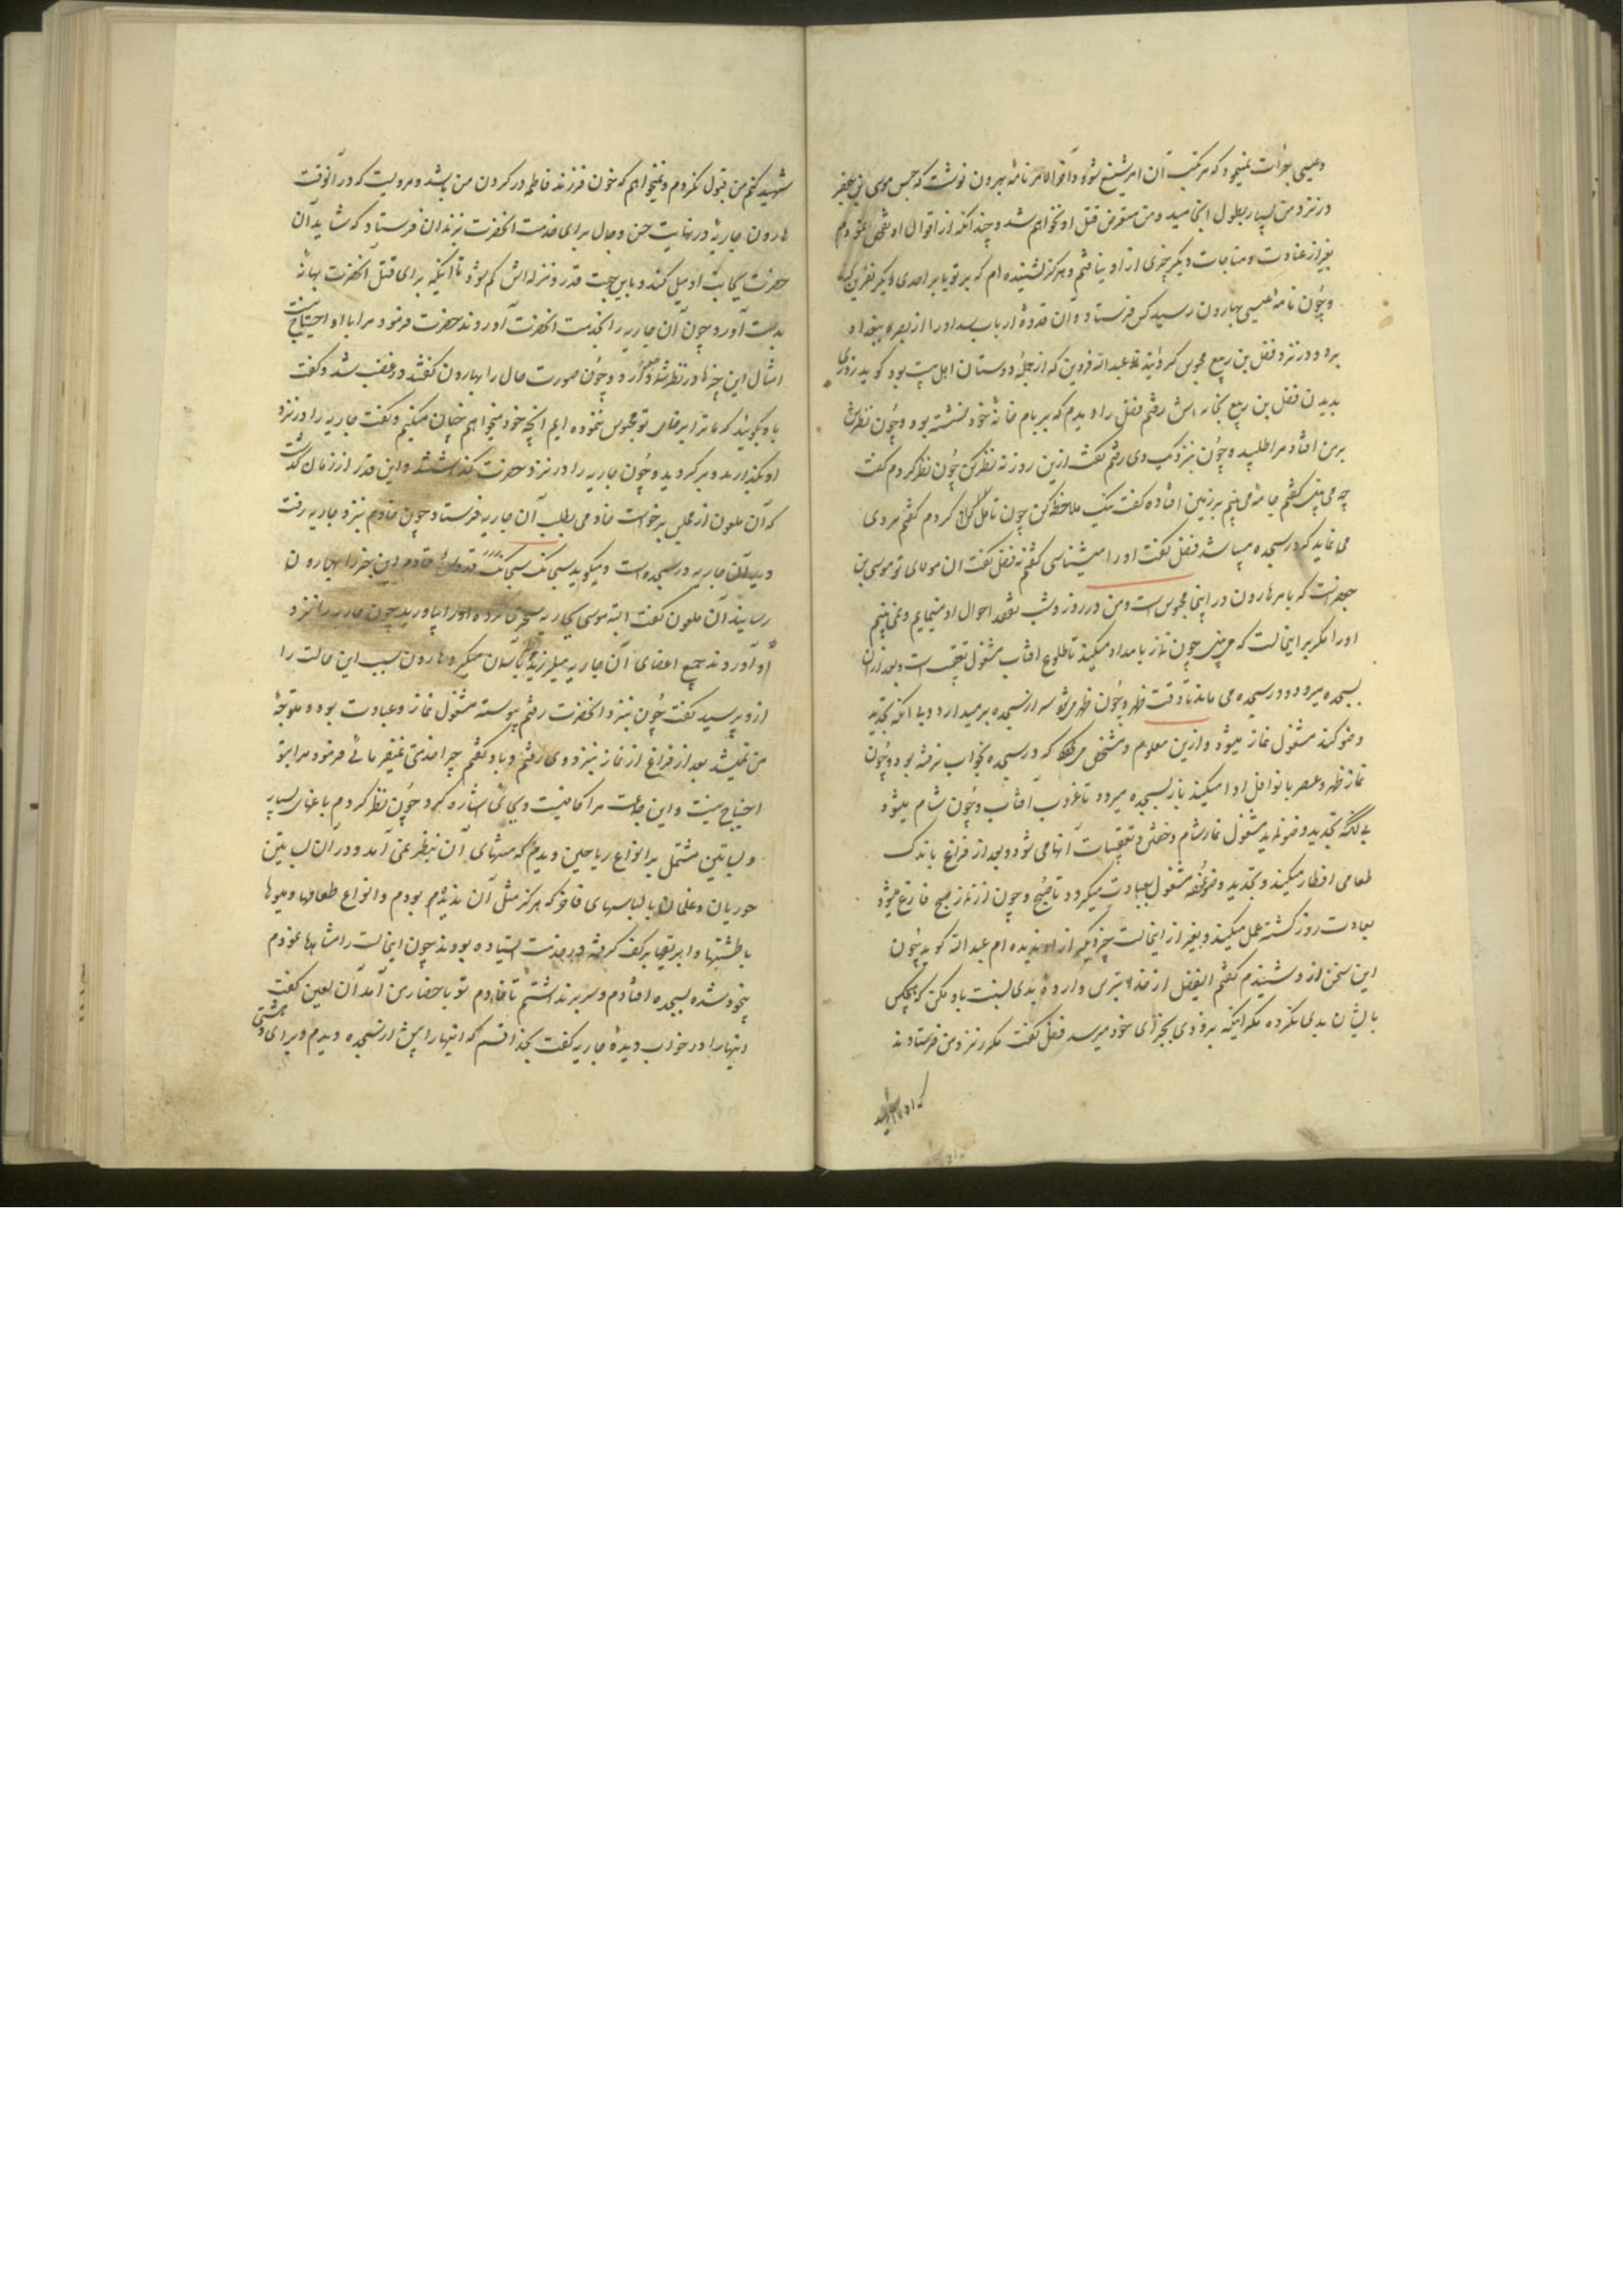 و عیسی جرأت نمیجود که مرتکب آن امر شنیع شود و آخر الامر نامهٔ بهرون نوشت که حبس موسی بن جعفر
در نزد من بسیار بطول انجامید و من متعرض قتل او نخواهم شد و چندانکه از احوال او تفحص نمودم
بغیر از عبادت و مناجات دیگر چیزی از او نیافتم و هرگز نشنیده ام که بر تو یا بر احدی دیگر نفرین کند
و چون نامهٔ عیسی بهارون رسید کس فرستاد و آن قدوهٔ ارباب سداد را از بصره ببغداد
برد و در نزد فضل بن ربیع محبوس گردانید عبد الله قزوین که از جملهٔ دوستان اهل بیت بود گوید روزی
بدیدن فضل بن ربیع بخانه اش رفتم فضل را دیدم که بر بام خانهٔ خود نشسته بود و چون نظرش
بر من افتاد مرا طلبید و چون بنزدیک وی رفتم گفت ازین روزنه نظر کن چون نظر کردم گفت
چه می بینی گفتم جامهٔ می بینم بر زمین افتاده گفت نیک ملاحظه کن چون تامل کردم گفتم مردی
می نماید که در سجده میباشد فضل گفت او را میشناسی گفتم نه فضل گفت ان مولای تو موسی بن
جعفرست که بامر هارون در اینجا محبوس است و من در روز و شب تفقد احوال او مینمایم و نمی بینم
او را مگر بر اینحالت که می بینی چون نماز بامداد میکند تا طلوع افتاب مشغول تعقیب است و بعد از ان
بسجده میرود و در سجده می ماند تا وقت ظهر و چون ظهر میشود سر از سجده بر میدارد و بی انکه تجدید
وضو کند مشغول نماز میشود و ازین معلوم و مشخص میشود که در سجده بخواب نرفته بود و چون
نماز ظهر و عصر با نوافل ادا میکند باز بسجده میرود تا غروب آفتاب و چون شام میشود
بی انکه تجدید وضو نماید مشغول نماز شام و خفتن و تعقیبات آنها می شود و بعد از فراغ باندک
طعامی افطار میکند و تجدید وضو نموده مشغول عبادت میگردد تا صبح و چون از نماز صبح فارغ میشود
بعادت روز گذشته عمل میکند و بغیر از اینحالت چیز دیگر از او ندیده ام عبد الله گوید چون
این سخن از و شنیدم گفتم ایفضل از خدا بترس و ارادهٔ بدی نسبت باو مکن که هیچکس
با ایشان بدی نکرده مگر اینکه بزودی بجزای خود میرسد فضل گفت مکرر نزد من فرستادند
که او را شهید
شهید کنم من قبول نکردم و نمیخواهم که خون فرزند فاطمه در گردن من باشد و مرویست که در آنوقت
هارون جاریهٔ در نهایت حسن و جمال برای خدمت انحضرت بزندان فرستاد که شاید آن
حضرت بجانب او میل کند و باین جهت قدر و منزله اش کم شود تا آنکه برای قتل انحضرت بهانه
بدست آورد و چون آن جاریه را بخدمت انحضرت آوردند حضرت فرمود مرا باو احتیاج نیست
امثال این چیزها در نظر شما وقع دارد و چون صورت حال را بهارون گفتند در غضب شد و گفت
باو بگوئید که ما ترا برضای تو محبوس ننموده ایم انچه خود میخواهیم چنان میکنیم و گفت جاریه را در نزد
او بگذارید و برگردید و چون جاریه را در نزد حضرت گذاشتند و این قدر از زمان گذشت
که آن ملعون از مجلس برخواست خادمی بطلب آن جاریه فرستاد چون خادم بنزد جاریه رفت
دید آن جاریه در سجده است و میگوید سبحانک سبحانک قدوس خادم این خبر را بهارون
رسانید آن ملعون گفت البته موسی بجاریه سحر کرده او را بیاورید چون جاریه را نزد
او آوردند جمیع اعضای آن جاریه میلرزید و بآسمان مینگریست هارون سبب این حالت را
ازو پرسید گفت چون بنزد انحضرت رفتم پیوسته مشغول نماز و عبادت بوده متوجهٔ
من نمیشد بعد از فراغ از نماز بنزد وی رفتم و باو گفتم چرا خدمتی نمیفرمائی فرمود مرا بتو
احتیاج نیست و این جماعت مرا کافیست و بجائی اشاره کرد چون نظر کردم باغهای بسیار
و بساتین مشتمل بر انواع ریاحین دیدم که منتهای آن بنظر نمی آمد و در آن بساتین
حوریان و غلمان با لباسهای فاخر که هرگز مثل آن ندیده بودم و انواع طعامها و میوها
با طشتها و ابریقها بر کف گرفته در خدمت ایستاده بودند چون اینحالت را مشاهده نمودم
بیخود شده بسجده افتادم و سر بر نداشتم تا خادم تو باحضار من آمد آن لعین گفت
اینها را در خواب دیدهٔ جاریه گفت بخدا قسم که اینها را پیش از سجده دیدم و برای